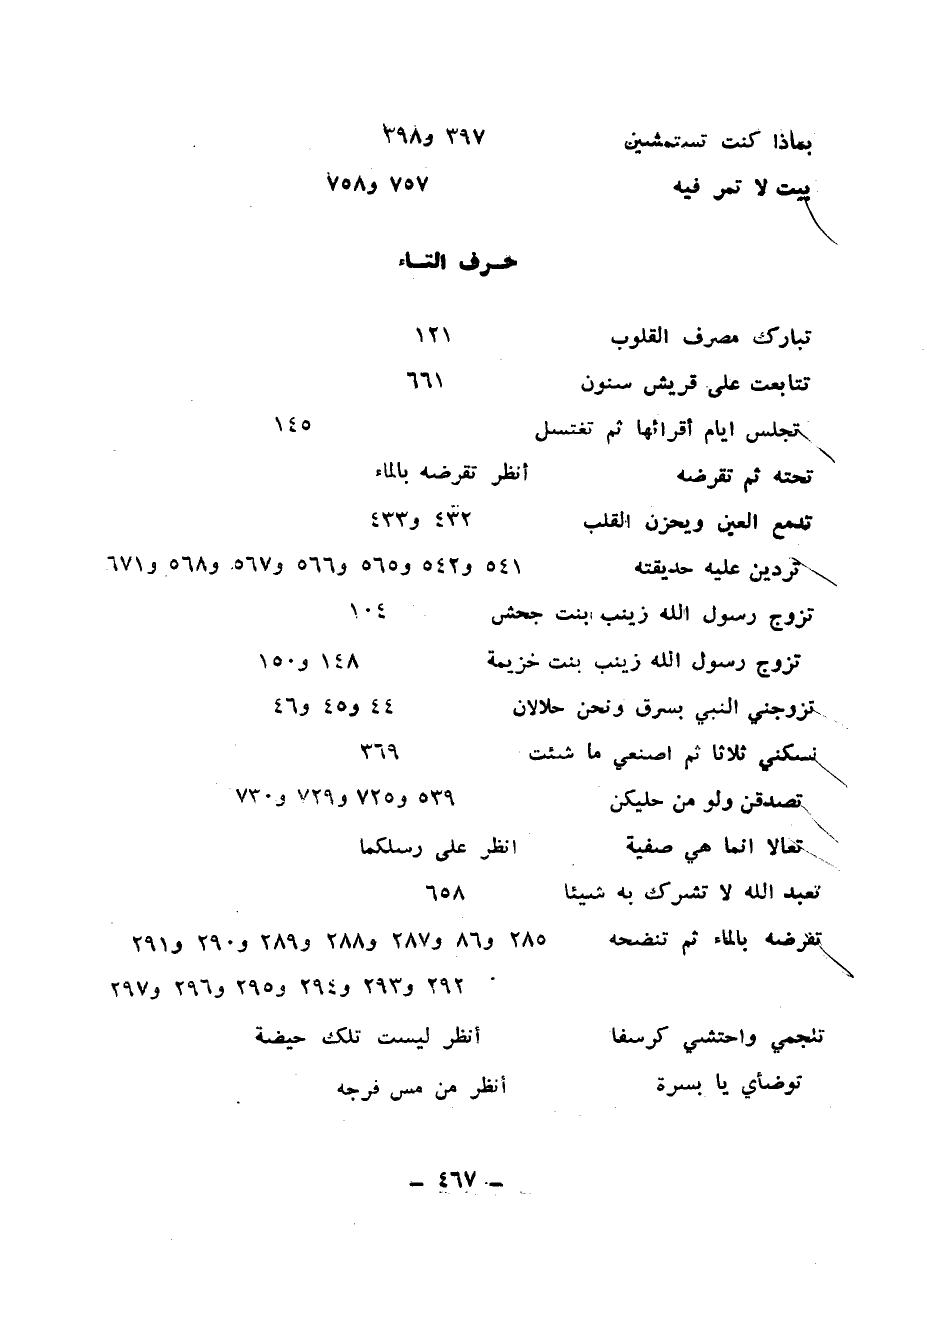 بماذا كنت تستمشين ٣٩٧ و٣٩٨
بيت لا تمر فيه ٧٥٧ و٧٥٨
حرف التاء
تبارك مصرف القلوب ١٢١
تتابعت على قريش سنون ٦٦١
تجلس ايام أقرائها ثم تغتسل ١٤٥
تحته ثم تقرضه أنظر تقرضه بالماء
تدمع العين ويحزن القلب ٤٣٢ و٤٣٣
تردين عليه حديقته ٥٤١ و٥٤٢ و٥٦٥ و٥٦٦ و٥٦٧ و٥٦٨ و٦٧١
تزوج رسول الله زينب ابنت جحش ١٠٤
تزوج رسول الله زينب بنت خزيمة ١٤٨ و١٥٠
تزوجني النبي بسرق ونحن حلالان ٤٤ و٤٥ و٤٦
تسكني ثلاثا ثم اصنعي ما شئت ٣٦٩
تصدقن ولو من حليكن ٥٣٩ و٧٢٥ و٧٢٩ و٧٣٠
تعالا انما هي صفية انظر على رسلكما
تعبد الله لا تشرك به شيئا ٦٥٨
تقرضه بالماء ثم تنضحه ٢٨٥ و٨٦ و٢٨٧ و٢٨٨ و٢٨٩ و٢٩٠ و٢٩١
٢٩٢ و٢٩٣ و٢٩٤ و٢٩٥ و٢٩٦ و٢٩٧
تلجمي واحتشي كرسفا أنظر ليست تلك حيضة
توضأي يا بسرة أنظر من مس فرجه
– ٤٦٧ –